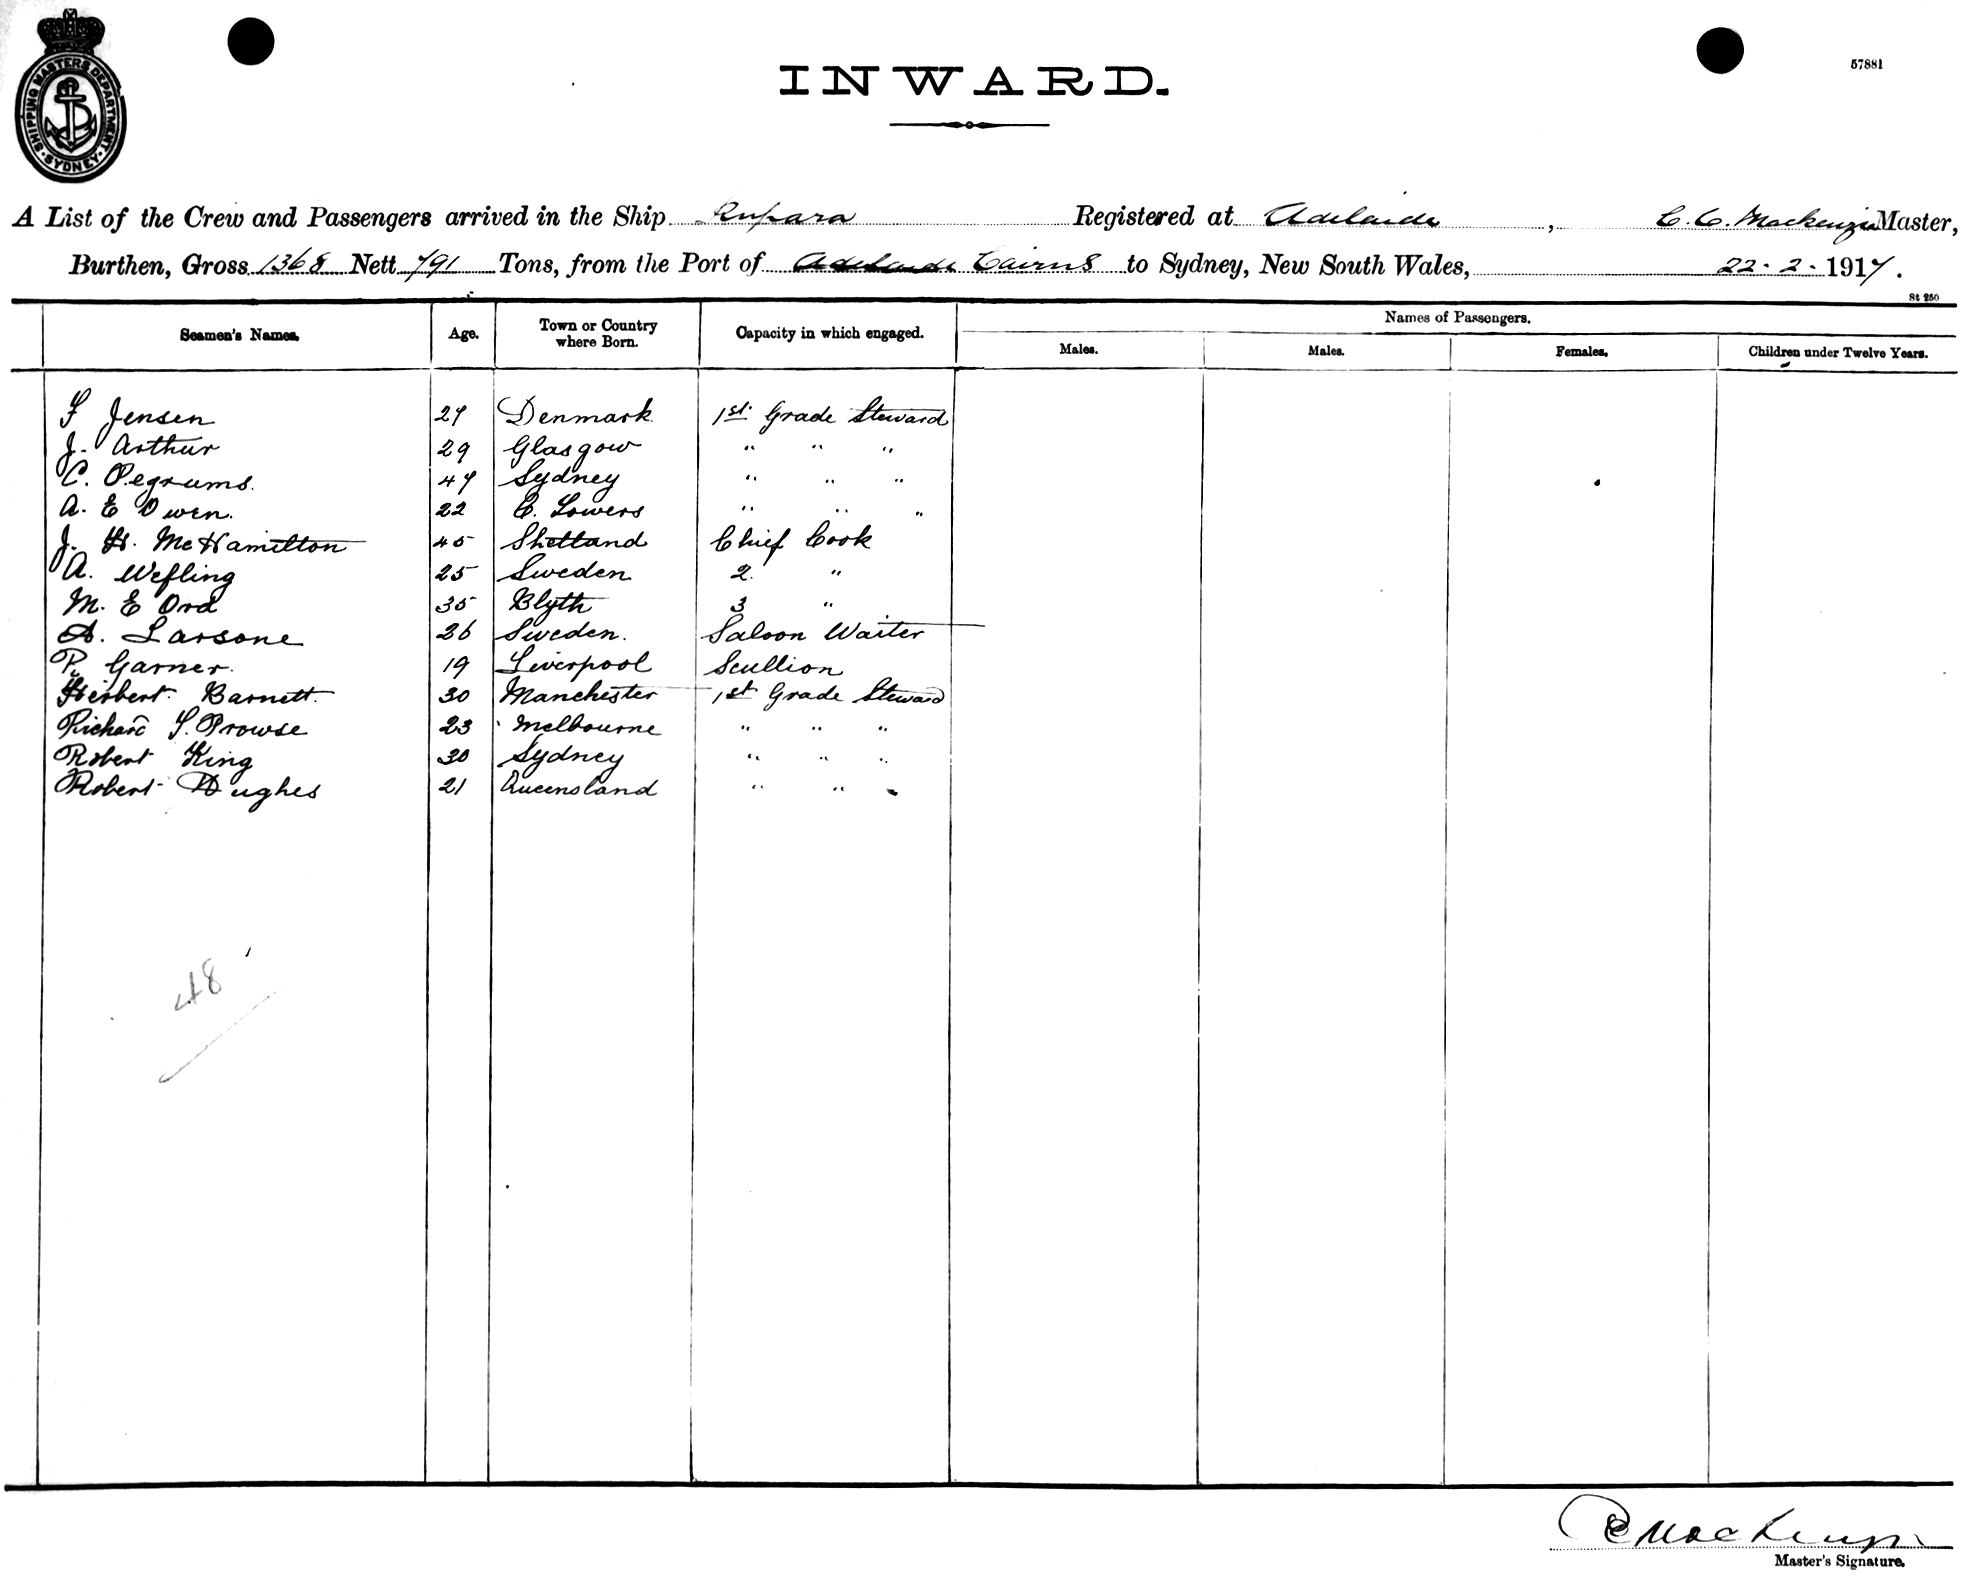 SHIPPING MASTERS DEPARTMENT
SYDNEY
57881
INWARD.
A List of the Crew and Passengers arrived in the Ship Rupara Registered at Adelaide, C. C. Mackenzie Master,
Burthen, Gross 1368 Nett 791 Tons, from the Port of Adelaide Cairns to Sydney, New South Wales, 22.2.1917.
St 250
Seamen's Names. Age. Town or Country where Born. Capacity in which engaged. Names of Passengers.
Males. Males. Females. Children under Twelve Years.
F Jensen 27 Denmark 1st Grade Steward
J. Arthur 29 Glasgow " " "
C. Pegrums. 47 Sydney " " "
A. E Owen. 22 C. Towers " " "
J. H. McHamilton 45 Shetland Chief Cook
A. Wefling 25 Sweden 2. "
M. E Ord 35 Blyth 3 "
A. Larsone 26 Sweden. Saloon Waiter
P. Garner. 19 Liverpool Scullion
Herbert Barnett. 30 Manchester 1st Grade Steward
Richard S. Prowse 23 Melbourne " " "
Robert King 30 Sydney " " "
Robert Hughes 21 Queensland " " "
48
C C Mackenzie
Master's Signature.